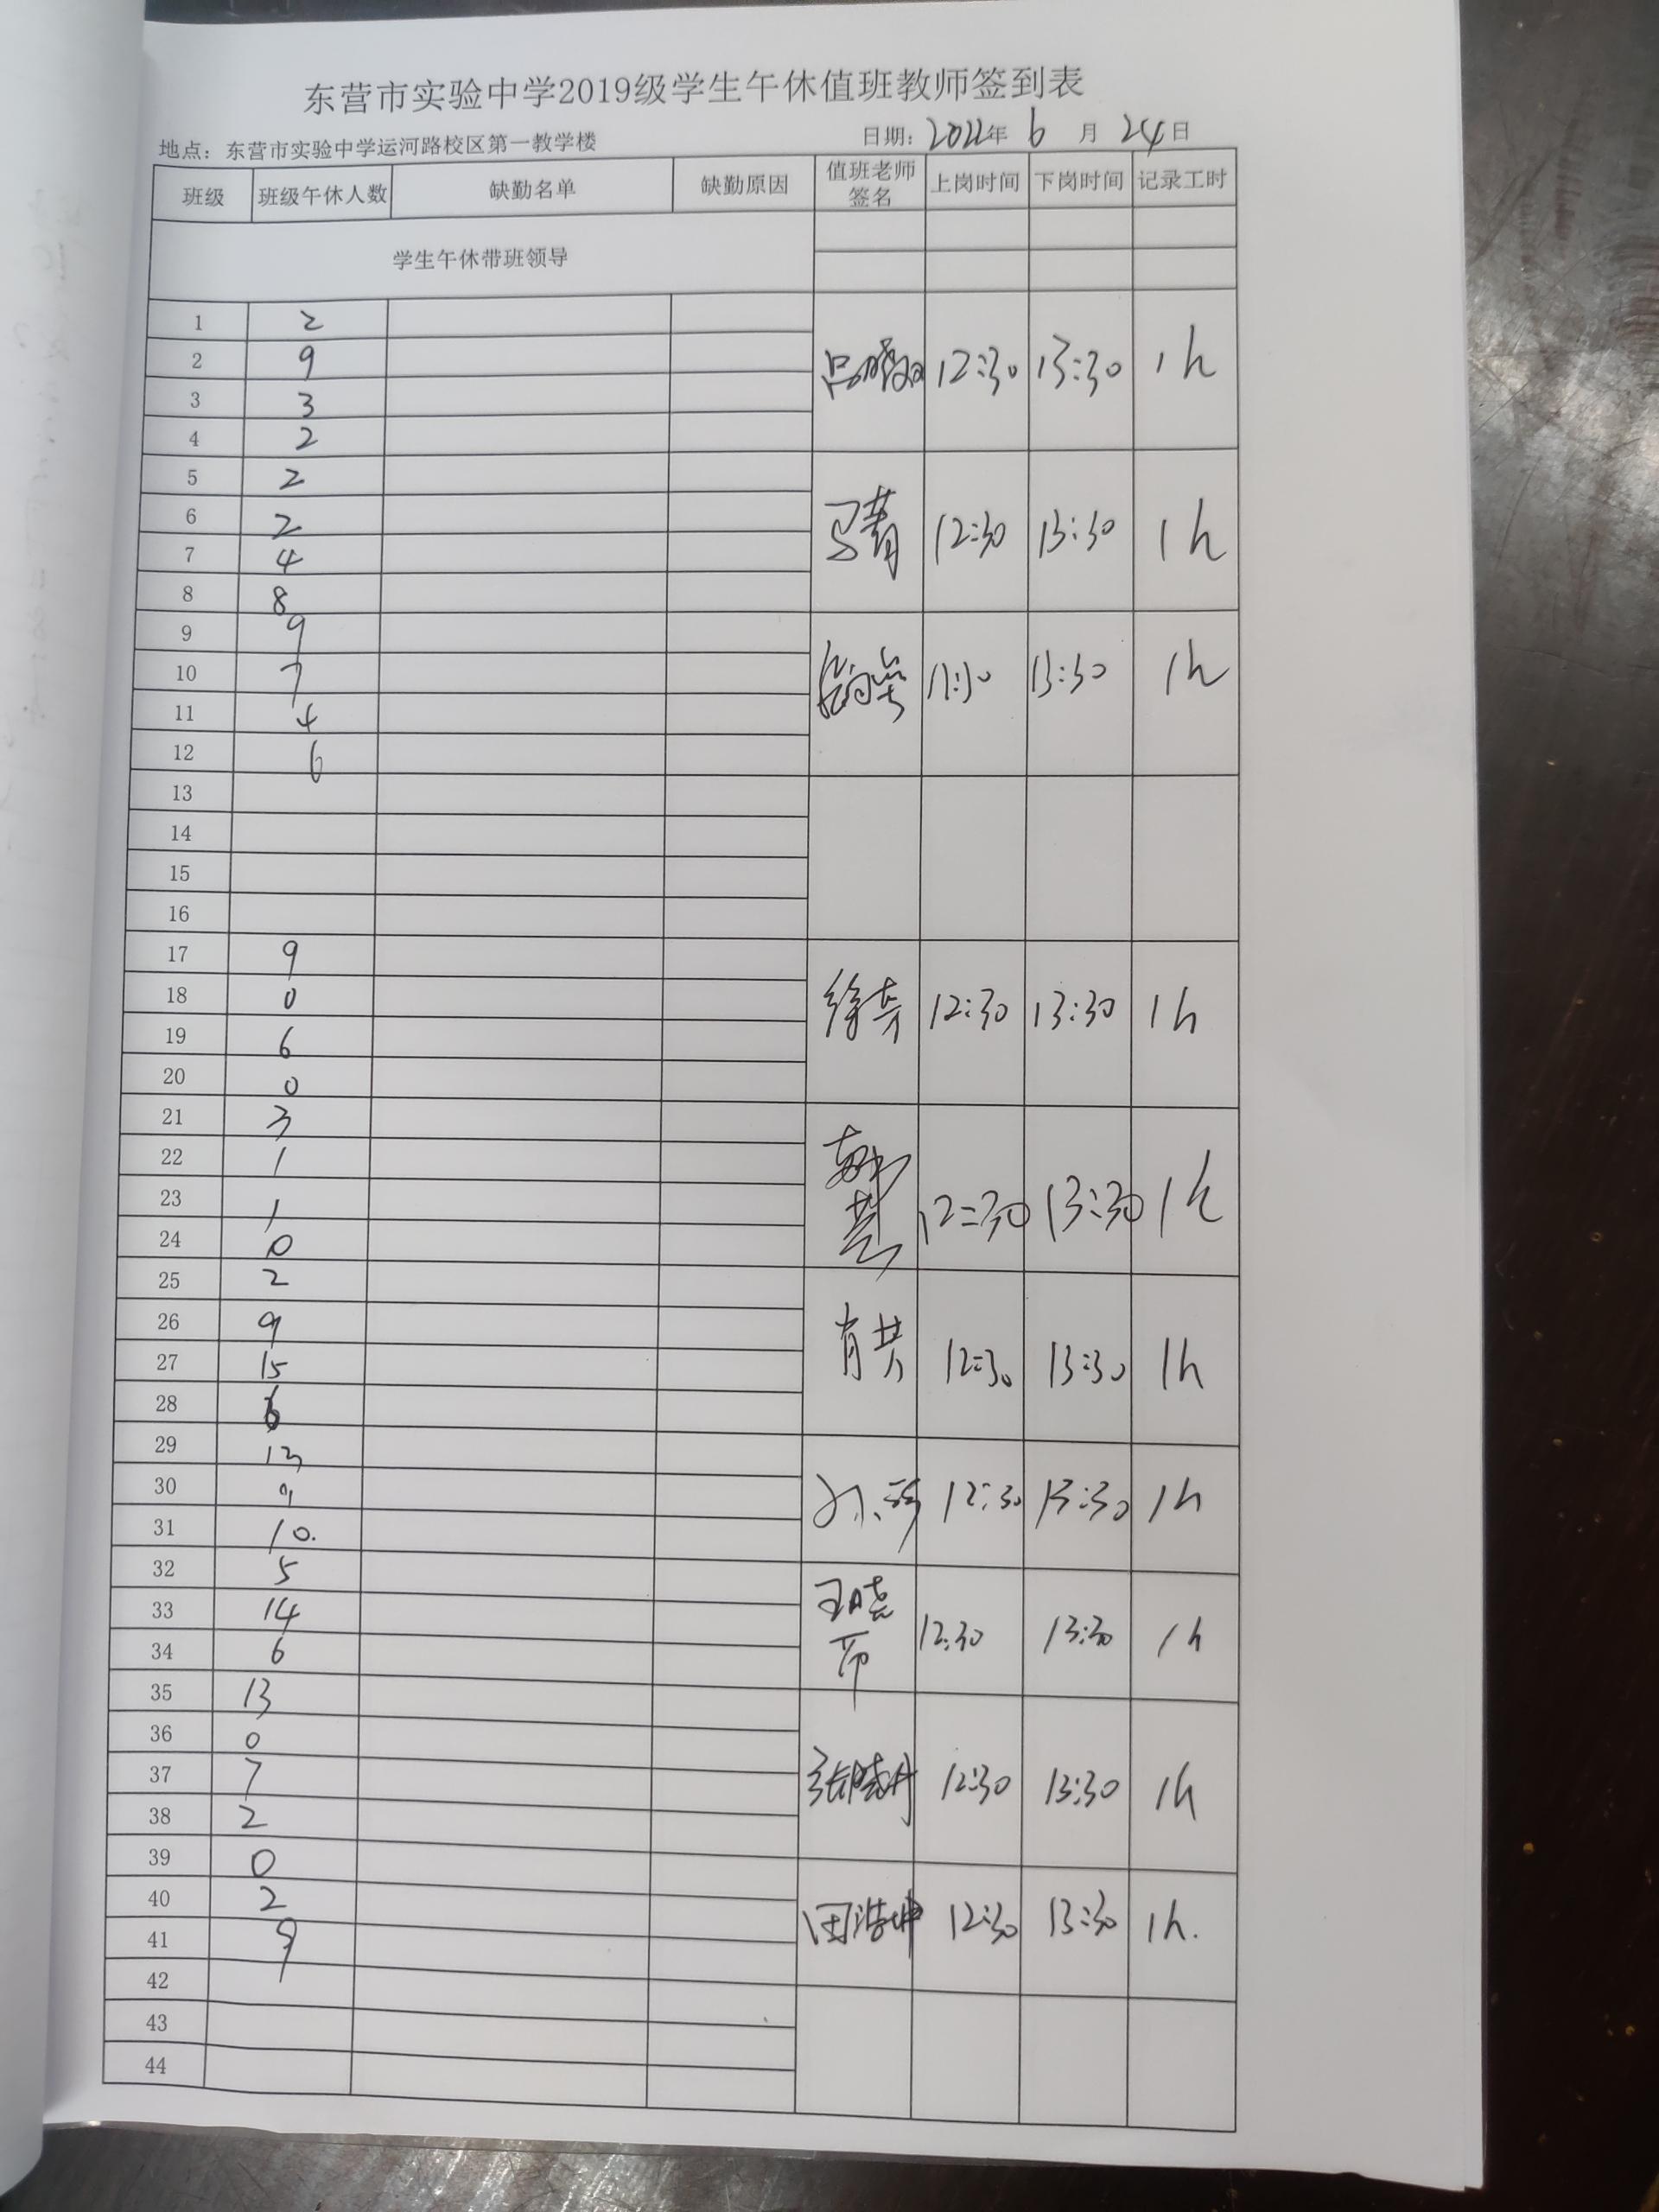 东营市实验中学2019级学生午休值班教师签到表
地点：东营市实验中学运河路校区第一教学楼 日期：2022年 6 月 24日
班级 班级午休人数 缺勤名单 缺勤原因 值班老师签名 上岗时间 下岗时间 记录工时
学生午休带班领导
1 2
2 9 12:30 13:30 1h
3 3
4 2
5 2
6 2 马菁 12:30 13:30 1h
7 4
8 8
9 9
10 7 13:30 1h
11 4
12 6
13
14
15
16
17 9
18 0 徐奔 12:30 13:30 1h
19 6
20 0
21 3
22 1
23 1 12:30 13:30 1h
24 0
25 2
26 9 肖共 12:30 13:30 1h
27 15
28 6
29 13
30 9 12:30 13:30 1h
31 10.
32 5
33 14 王晓 12:30 13:30 1h
34 6
35 13
36 0
37 7 张晓丹 12:30 13:30 1h
38 2
39 0
40 2 田浩坤 12:30 13:30 1h.
41 9
42
43
44